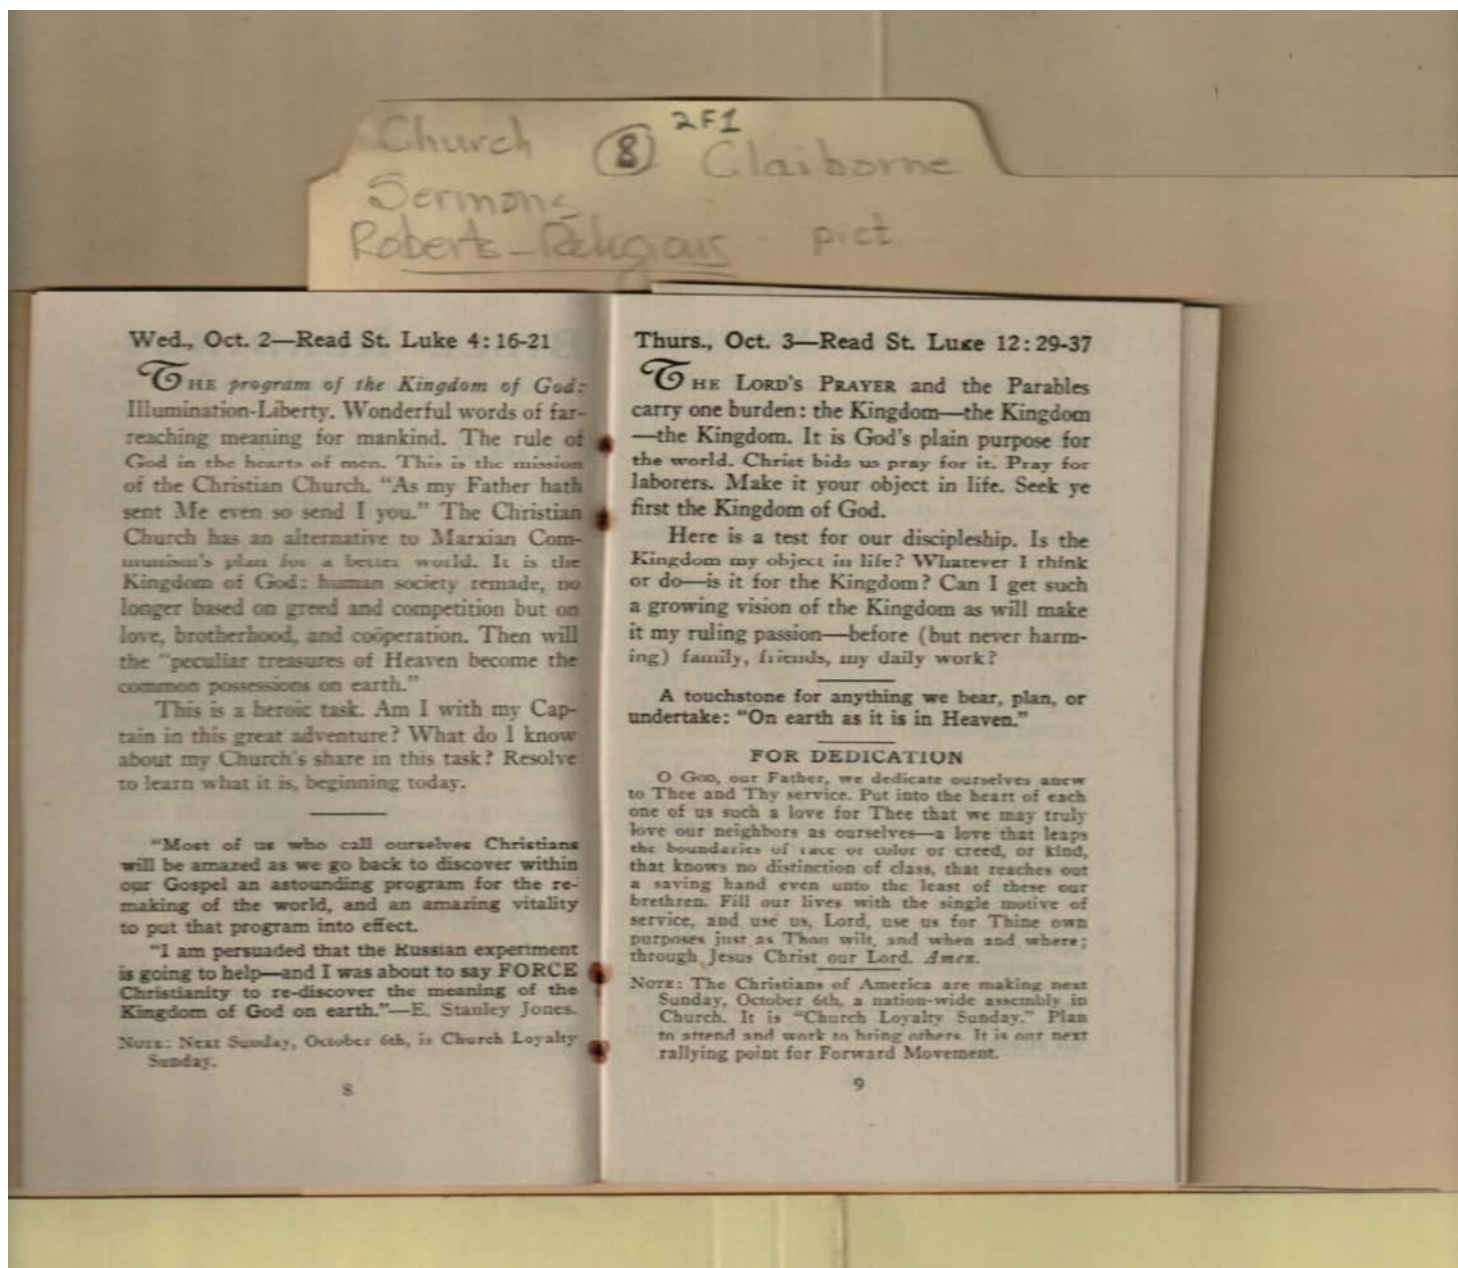 Church ⑧ 2F1 Claiborne
Sermons
Roberts-Religious pict
Wed., Oct. 2—Read St. Luke 4:16-21
THE program of the Kingdom of God:
Illumination-Liberty. Wonderful words of far-
reaching meaning for mankind. The rule of
God in the hearts of men. This is the mission
of the Christian Church. “As my Father hath
sent Me even so send I you.” The Christian
Church has an alternative to Marxian Com-
munism's plan for a better world. It is the
Kingdom of God: human society remade, no
longer based on greed and competition but on
love, brotherhood, and coöperation. Then will
the “peculiar treasures of Heaven become the
common possessions on earth.”
This is a heroic task. Am I with my Cap-
tain in this great adventure? What do I know
about my Church's share in this task? Resolve
to learn what it is, beginning today.
“Most of us who call ourselves Christians
will be amazed as we go back to discover within
our Gospel an astounding program for the re-
making of the world, and an amazing vitality
to put that program into effect.
“I am persuaded that the Russian experiment
is going to help—and I was about to say FORCE
Christianity to re-discover the meaning of the
Kingdom of God on earth.”—E. Stanley Jones.
NOTE: Next Sunday, October 6th, is Church Loyalty
Sunday.
8
Thurs., Oct. 3—Read St. Luke 12:29-37
THE LORD'S PRAYER and the Parables
carry one burden: the Kingdom—the Kingdom
—the Kingdom. It is God's plain purpose for
the world. Christ bids us pray for it. Pray for
laborers. Make it your object in life. Seek ye
first the Kingdom of God.
Here is a test for our discipleship. Is the
Kingdom my object in life? Whatever I think
or do—is it for the Kingdom? Can I get such
a growing vision of the Kingdom as will make
it my ruling passion—before (but never harm-
ing) family, friends, my daily work?
A touchstone for anything we bear, plan, or
undertake: “On earth as it is in Heaven.”
FOR DEDICATION
O GOD, our Father, we dedicate ourselves anew
to Thee and Thy service. Put into the heart of each
one of us such a love for Thee that we may truly
love our neighbors as ourselves—a love that leaps
the boundaries of race or color or creed, or kind,
that knows no distinction of class, that reaches out
a saving hand even unto the least of these our
brethren. Fill our lives with the single motive of
service, and use us, Lord, use us for Thine own
purposes just as Thou wilt, and when and where;
through Jesus Christ our Lord. Amen.
NOTE: The Christians of America are making next
Sunday, October 6th, a nation-wide assembly in
Church. It is “Church Loyalty Sunday.” Plan
to attend and work to bring others. It is our next
rallying point for Forward Movement.
9